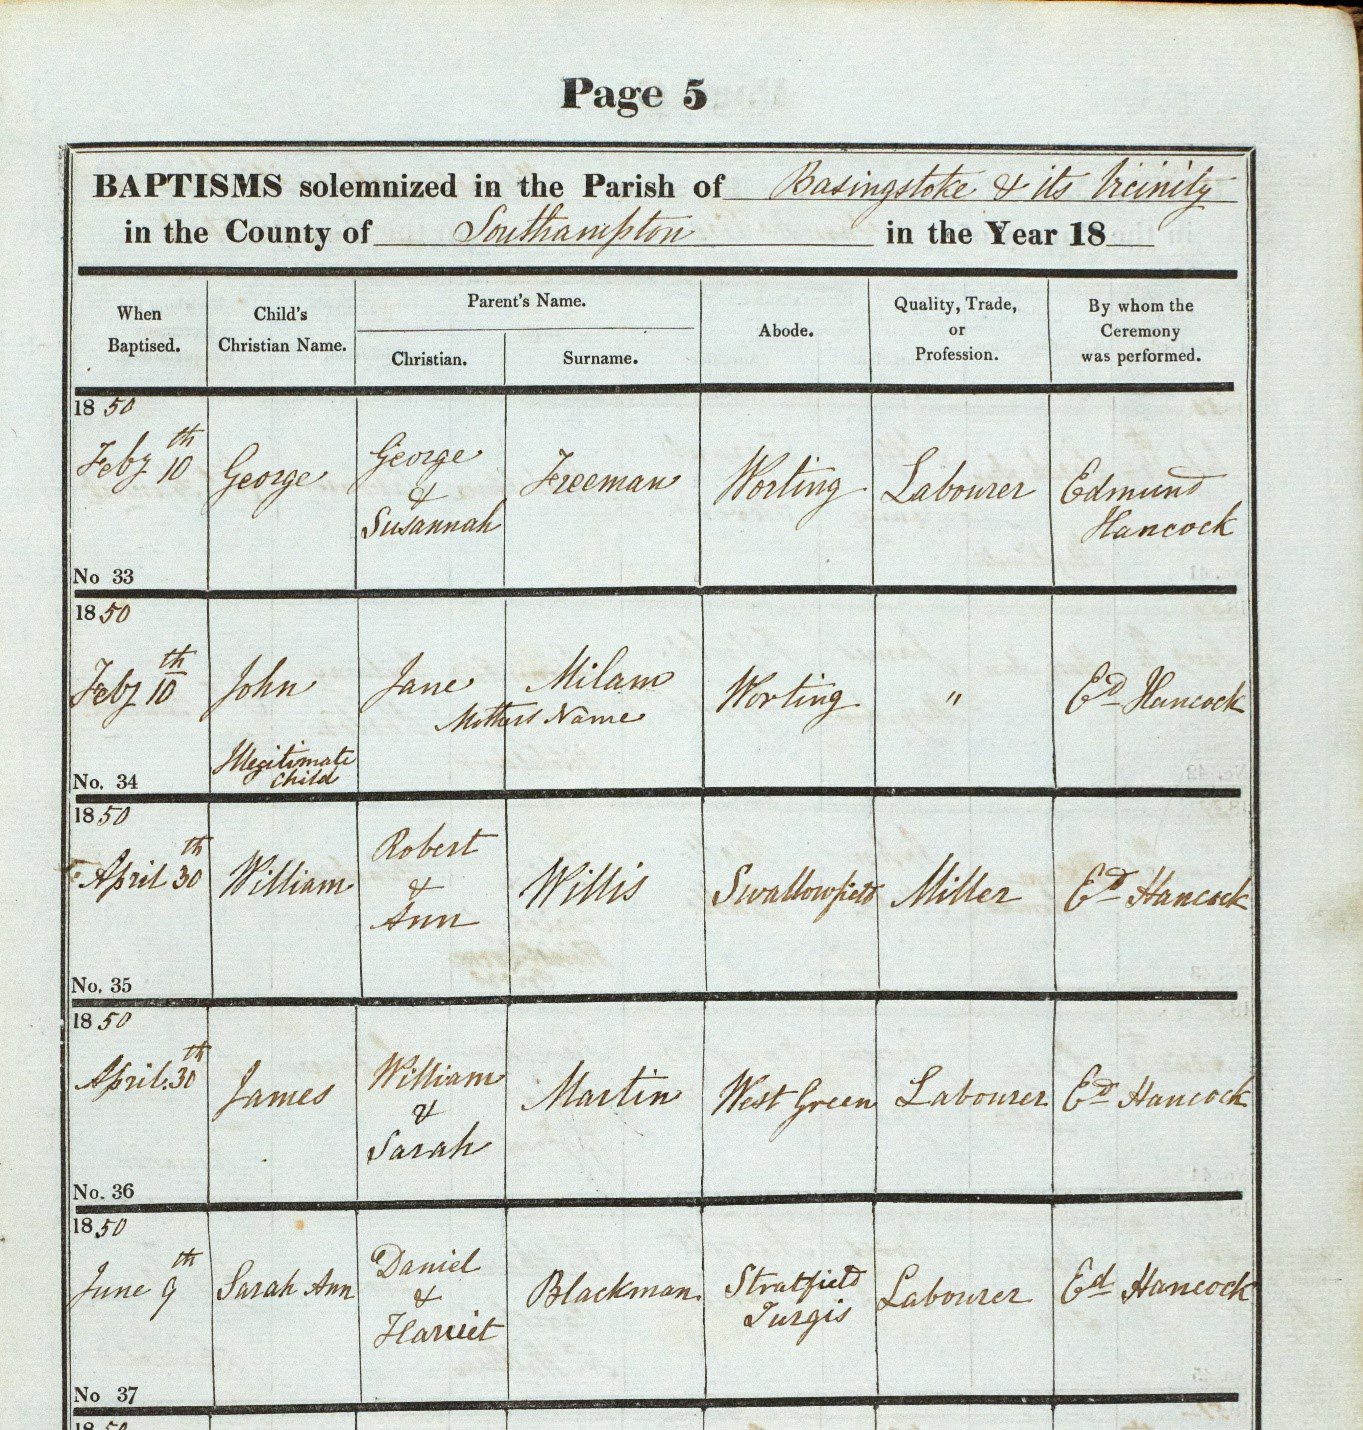 Page 5
BAPTISMS solemnized in the Parish of Basingstoke & its Vicinity
in the County of Southampton in the Year 18
When Baptised.
Child's Christian Name.
Parent's Name.
Christian.
Surname.
Abode.
Quality, Trade, or Profession.
By whom the Ceremony was performed.
1850
Feby 10th
George
George
&
Susannah
Freeman
Worting
Labourer
Edmund
Hancock
No 33
1850
Feby 10th
John
Illegitimate
Child
Jane
Milam
Mothers Name
Worting
"
Ed Hancock
No. 34
1850
April 30th
William
Robert
&
Ann
Willis
Swallowfield
Miller
Ed Hancock
No. 35
1850
April. 30th
James
William
&
Sarah
Martin
West Green
Labourer
Ed Hancock
No. 36
1850
June 9th
Sarah Ann
Daniel
&
Harriet
Blackman
Stratfield
Turgis
Labourer
Ed Hancock
No 37
1850